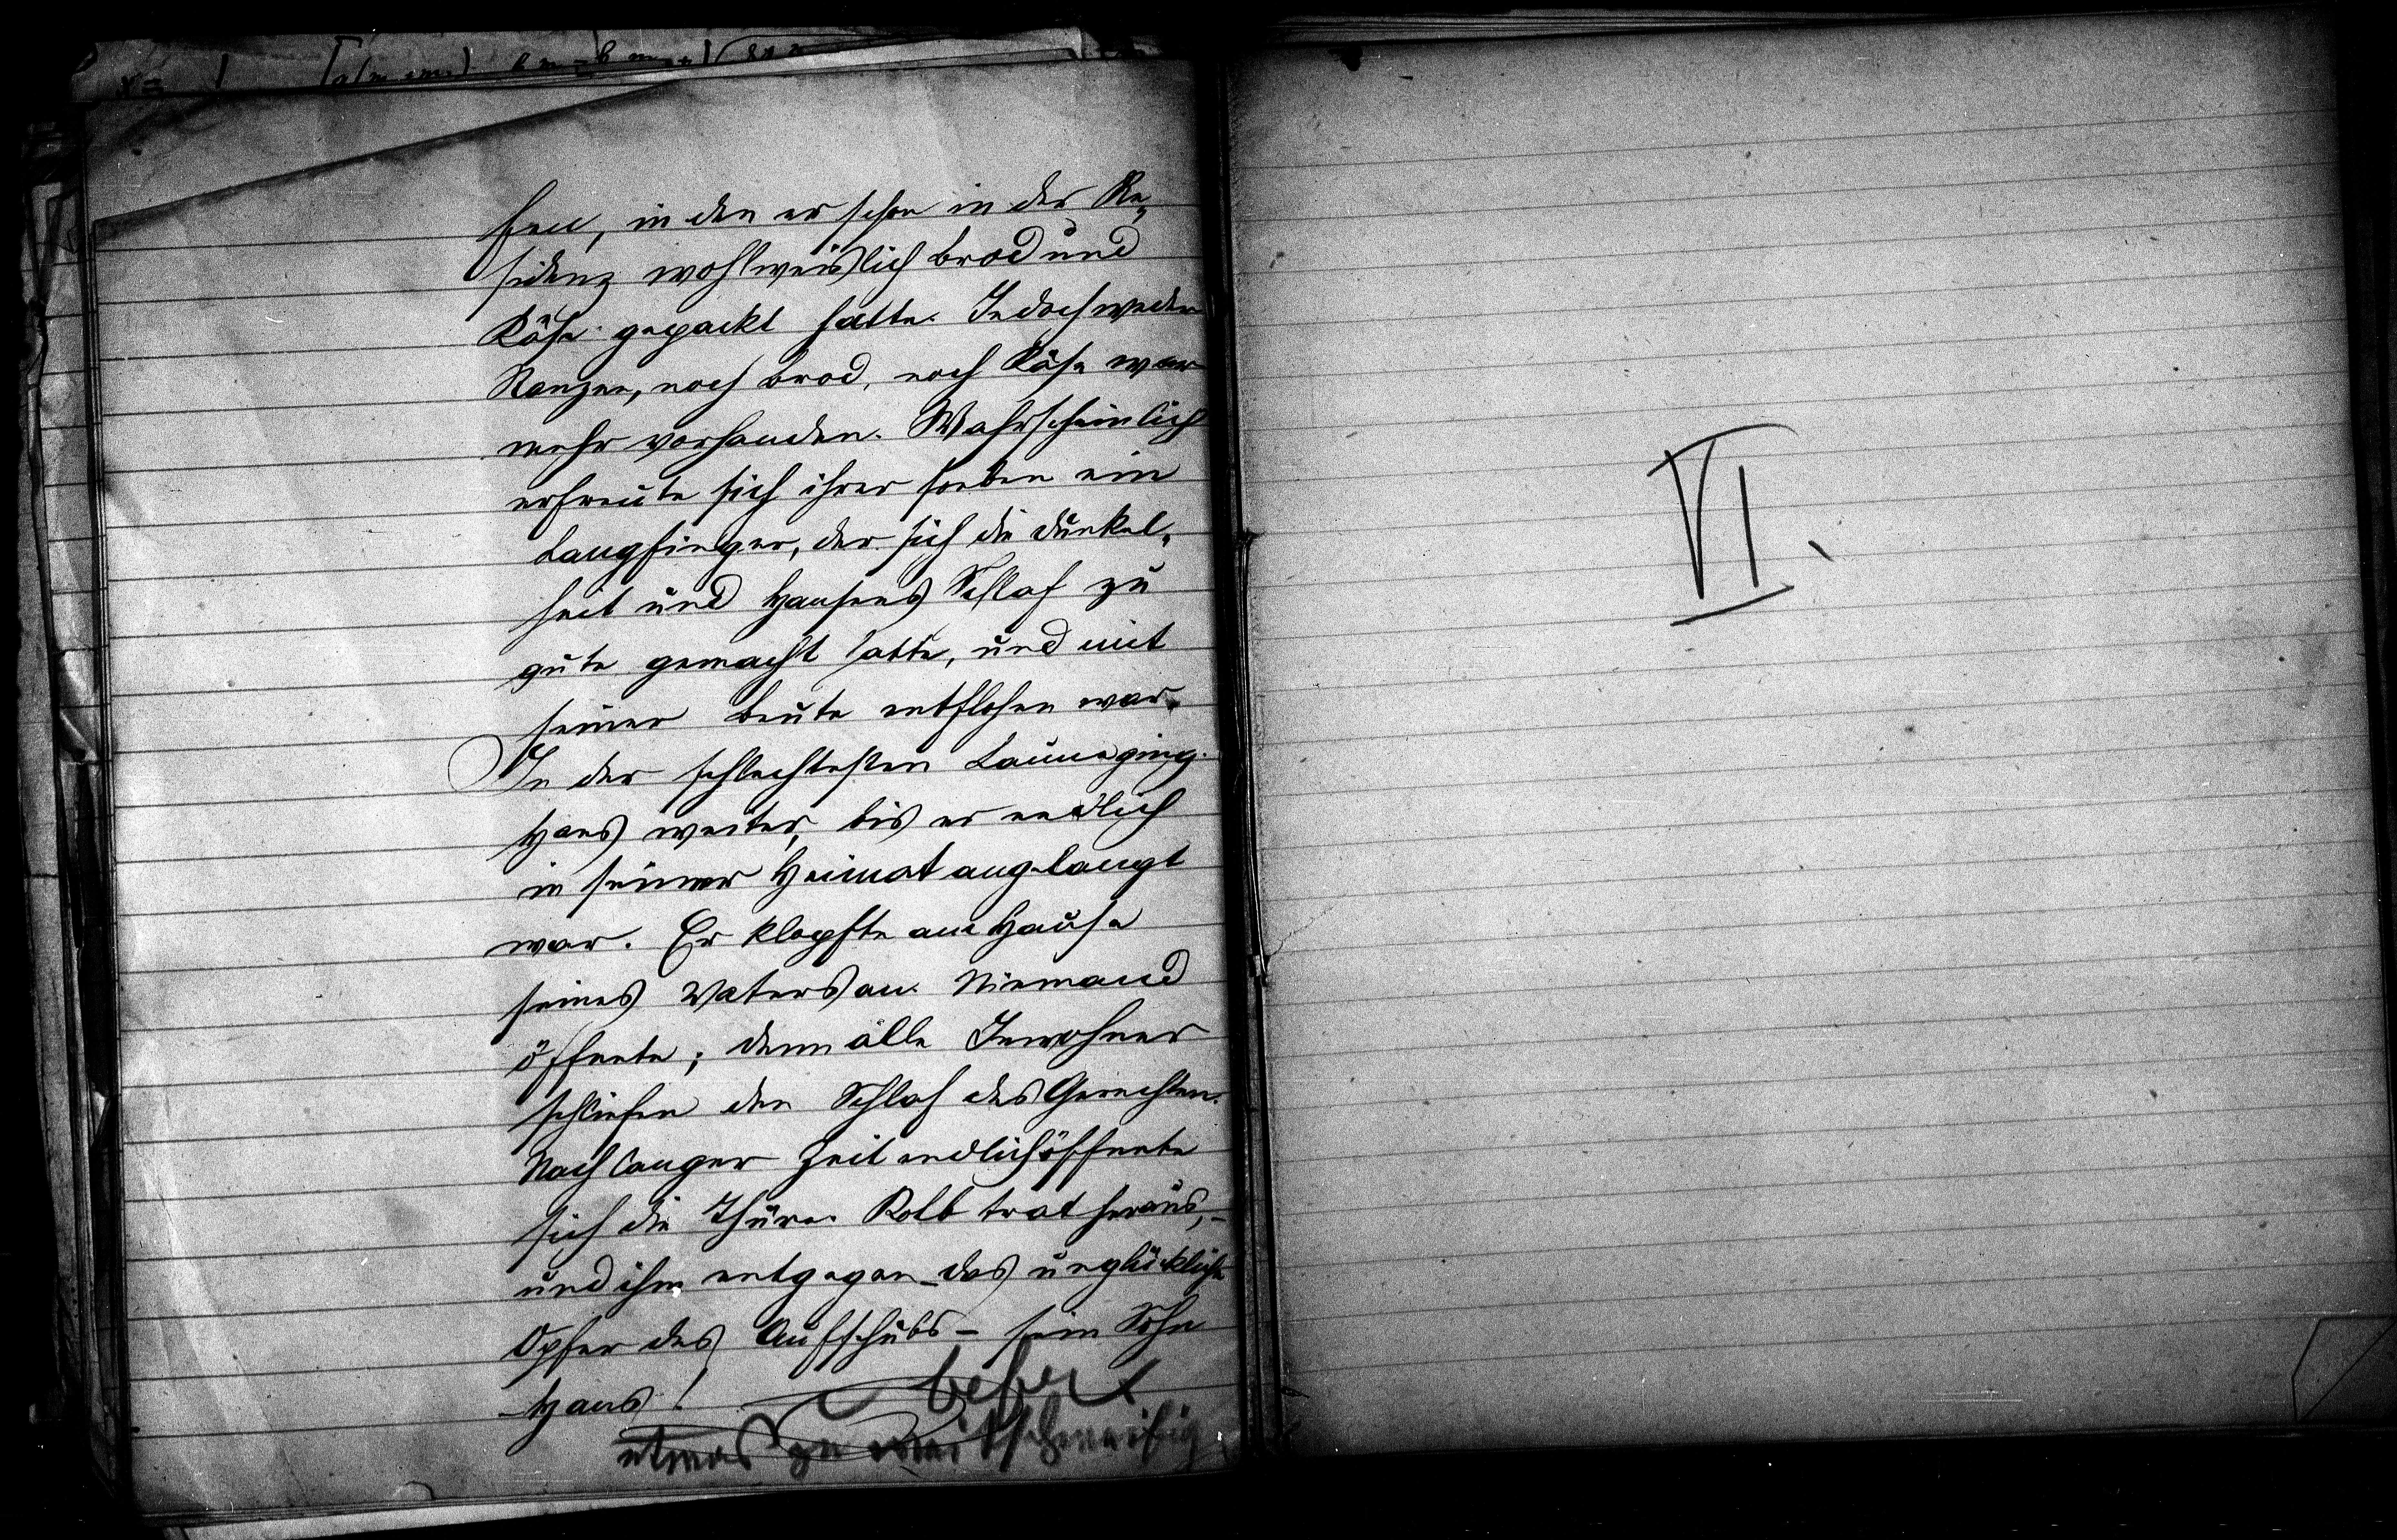 fen, in den er schon in der Re-
sidenz wohlweislich Brod und
Käse gepackt hatte. Jedoch weder
Ranzen, noch Brod, noch Käse war
mehr vorhanden. Wahrscheinlich
erfreute sich ihrer soeben ein
Langfinger, der sich die Dunkel-
heit und Hansens Schlaf zu
gute gemacht hatte, und mit
seiner Beute entflohen war.
In der schlechtesten Laune ging
Hans weiter, bis er endlich
in seiner Heimat angelangt
war. Er klopfte am Hause
seines Vaters an. Niemand
öffnete; denn alle Inwohner
schliefen den Schlaf des Gerechten.
Nach langer Zeit endlich öffnete
sich die Thüre. Kolb trat heraus,-
und ihm entgegen - das unglückliche
Opfer des Aufschubs - sein Sohn
Hans!
etwas zu weitschweifig
VI.